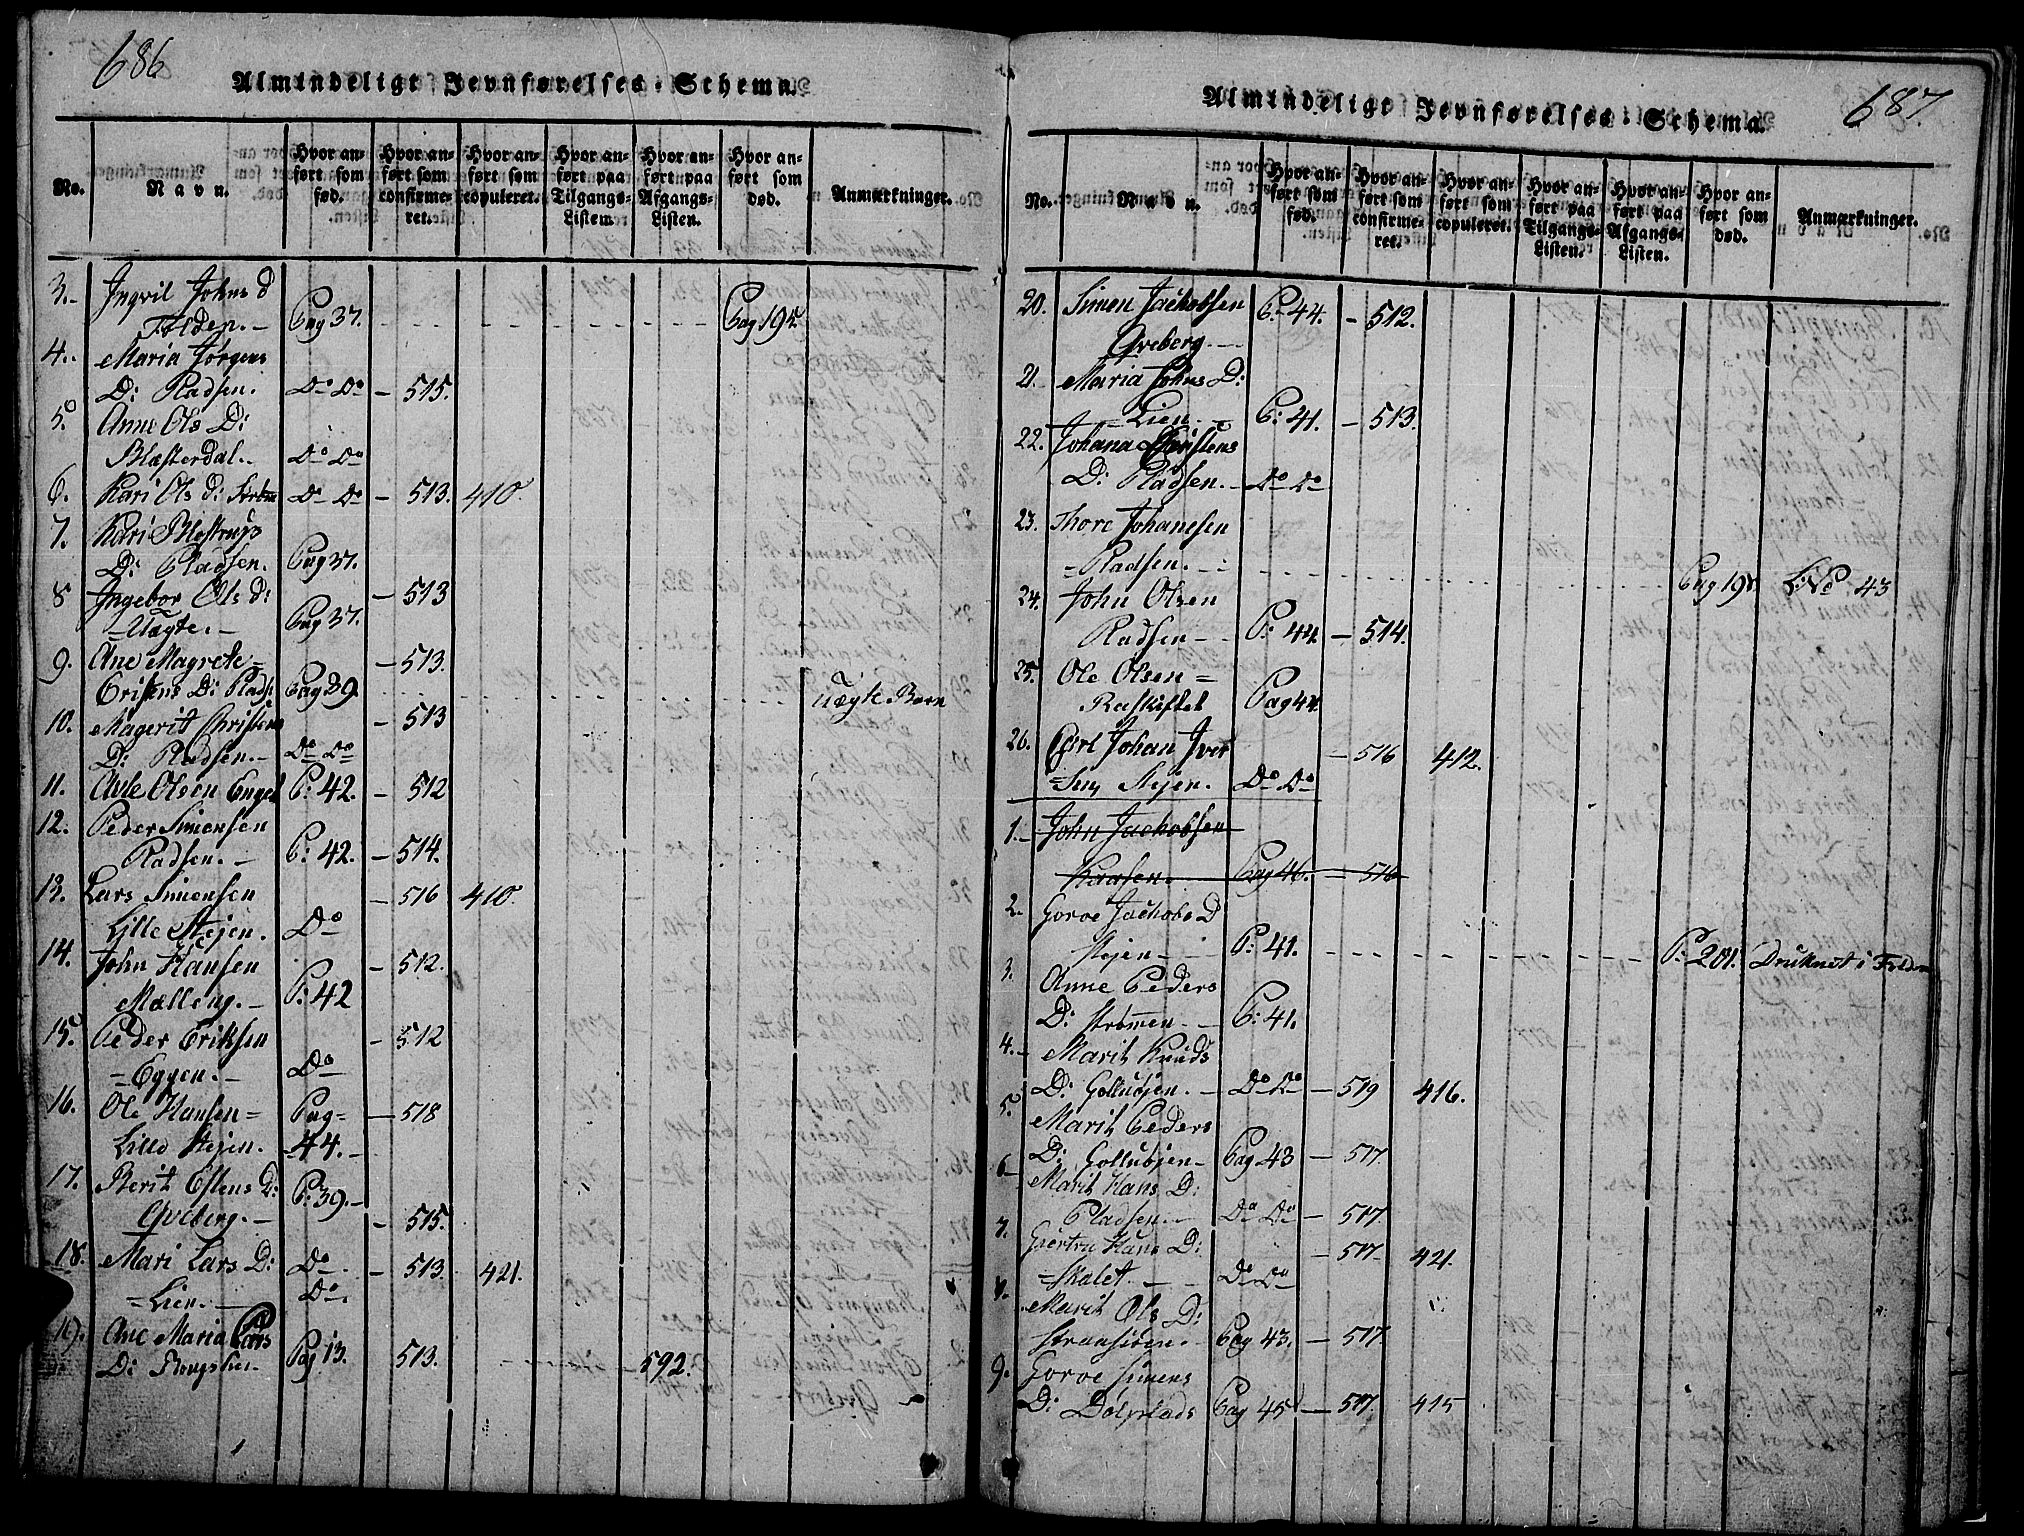 686
Almindeligt Jevnførelses-Schema.
No.
Navn.
Hvor anført som fød.
Hvor anført som confirmeret.
Hvor anført som copuleret.
Hvor anført paa Tilgangs-Listen.
Hvor anført paa Afgangs-Listen.
Hvor anført som død.
Anmærkninger.
3. Ingvil Johns d
Folden. Pag 37. Pag 195.
4. Maria Jörgens
D: Pladsen. Do Do 515.
5. Anne Ols D:
Blæsterdal. Do Do
6. Kari Ols d: Ström Do Do 513. 410.
7. Kari
D: Pladsen. Pag 37.
8 Ingebor Ols d: 513
Uægte. Pag 37.
9. Ane Magrete 513.
Cristens D: Plads: Pag 39. Uægte Barn
10. Magerit Christens 513
D: Pladsen. Do Do
11. Olsen Enget P: 42. 512
12. Peder Simensen
Pladsen. P: 42. 514.
13. Lars Simensen 516 410.
Lille Stejen. Do
14. John Hansen 512.
Mælleng. P: 42
15. Peder Eriksen 512
Eggen. Do
16. Ole Hansen Pag 518
Lille Stejen. 44.
17. Berit Estens D: P: 39.
Qveberg. 515.
18. Mari Lars D: Do 513. 421.
Lien. Do.
19. Ane Maria Lars
D: Pag 13. 513. 592.
687.
Almindeligt Jevnførelses-Schema.
No.
Navn.
Hvor anført som fød.
Hvor anført som confirmeret.
Hvor anført som copuleret.
Hvor anført paa Tilgangs-Listen.
Hvor anført paa Afgangs-Listen.
Hvor anført som død.
Anmærkninger.
20. Simen Jachobsen P: 44. 512.
Qveberg.
21. Maria Johns D:
Lien. P: 41. 513.
22. Johana Cristens
D: Pladsen. Do Do
23. Thore Johanesen
Pladsen. Pag 198 43
24. John Olsen
Pladsen P: 44 514.
25. Ole Olsen
Raskiftet Pag 44
26. Carl Johan Iver 516 412.
Sen Stejen. Do Do
1. John Jachobsen
Kaasen. Pag 46. 516
2. Goroe Jachobs D
Stejen P: 41. P: 201. Druknet i Folden
3. Anne Peders
D: Strömen P: 41.
4. Marit Knuds
D: Gollusjen. Do Do 519 416.
5. Marit Peders
D: Gollusjen Pag 43 517.
6 Marit Hans D:
Pladsen. Do Do 517.
7. Giertru Hans D: 517. 421.
Skalet. Do Do
8. Marit Ols D:
Pag 43. 517.
9. Goroe Simens
D: Dölplads Pag 45 517. 415